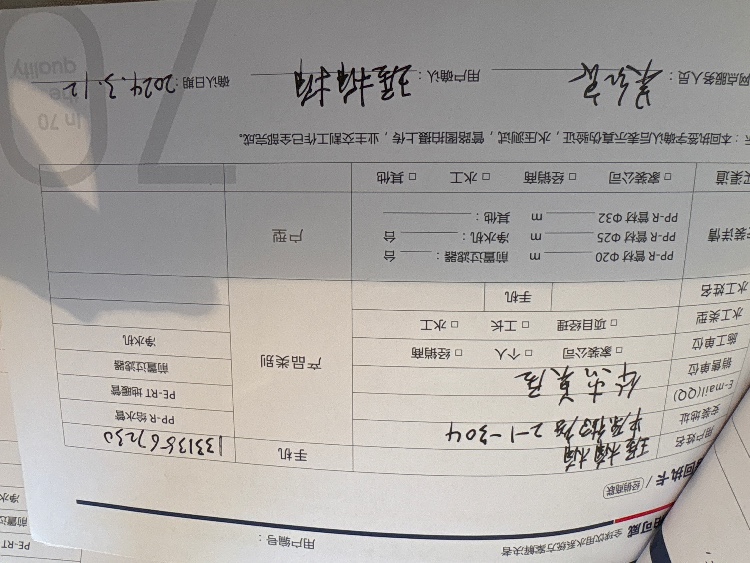 全球饮用水系统方案解决者
用户编号：
回执卡 / 经销商联
用户姓名
手机 13313867230
安装地址 2-1-304
E-mail(QQ)
销售单位
施工单位 □ 家装公司 □ 个人 □ 经销商
水工类型 □ 项目经理 □ 工长 □ 水工
水工姓名 手机
产品类别
PP-R 给水管
PE-RT 地暖管
前置过滤器
净水机
PP-R 管材 Φ20 m 前置过滤器： 台
PP-R 管材 Φ25 m 净水机： 台
PP-R 管材 Φ32 m 其他：
户型
□ 家装公司 □ 经销商 □ 水工 □ 其他
本回执签字确认后表示真伪验证，水压测试，管路图拍摄上传，业主交割工作已全部完成。
网点服务人员：
用户确认：
确认日期：2024.3.12
In 70
the
quality
70
PE-RT
前置过
净水